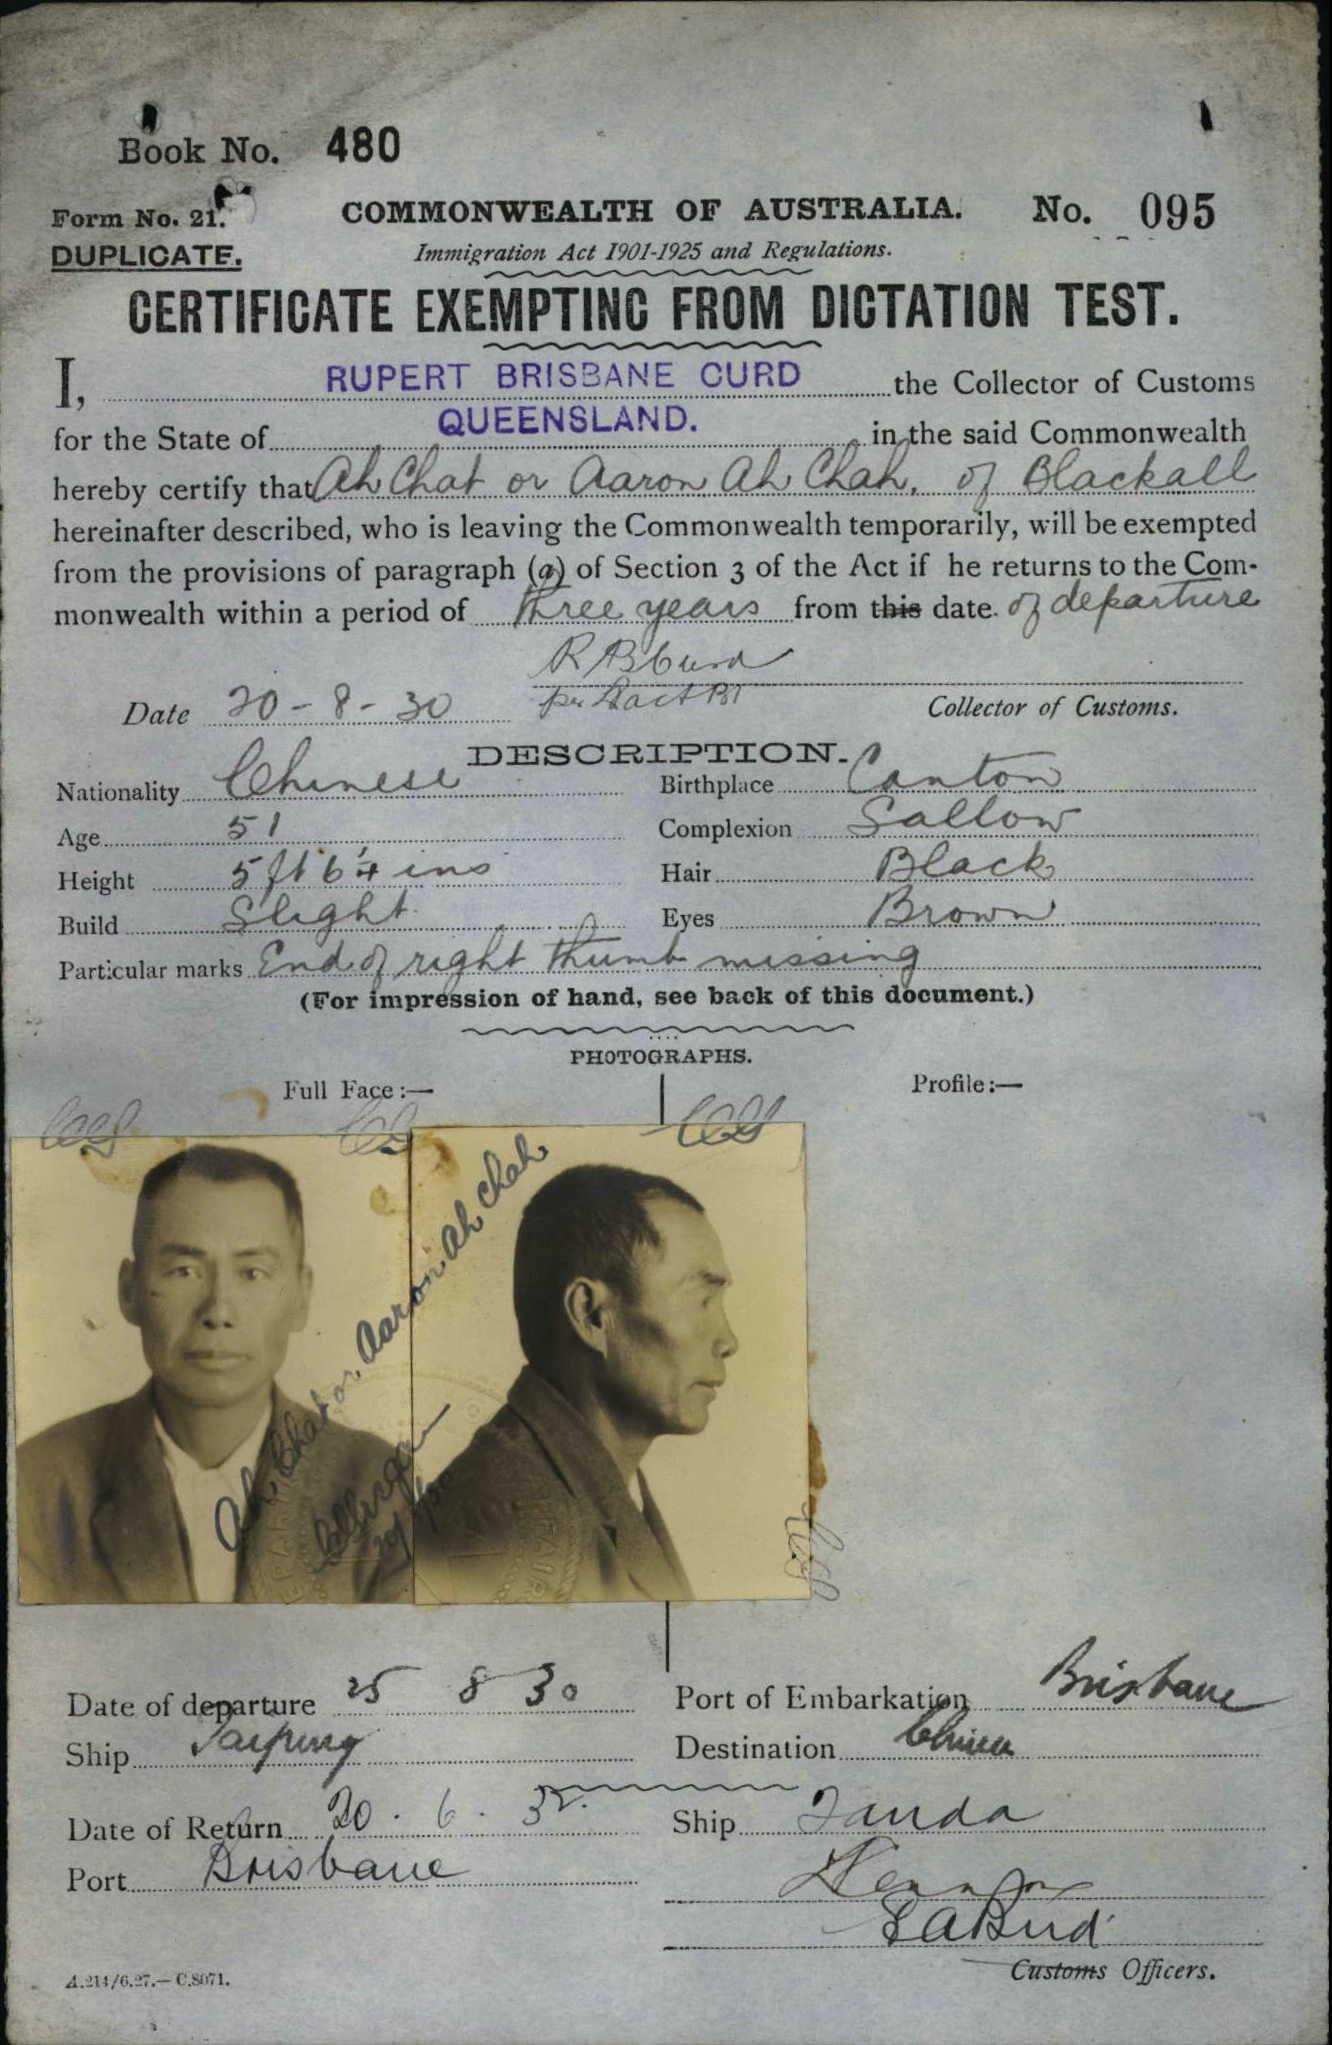 Book No. 480
Form No. 21.
DUPLICATE.
COMMONWEALTH OF AUSTRALIA. No. 095
Immigration Act 1901-1925 and Regulations.
CERTIFICATE EXEMPTING FROM DICTATION TEST.
I, RUPERT BRISBANE CURD the Collector of Customs
for the State of QUEENSLAND. in the said Commonwealth
hereby certify that Ah Chat or Aaron Ah Chah, of Blackall
hereinafter described, who is leaving the Commonwealth temporarily, will be exempted
from the provisions of paragraph (a) of Section 3 of the Act if he returns to the Com-
monwealth within a period of three years from this date of departure
R B Curd
per
Date 20-8-30 Collector of Customs.
DESCRIPTION.
Nationality Chinese Birthplace Canton
Age 51 Complexion Sallow
Height 5 ft 6¼ ins Hair Black
Build Slight Eyes Brown
Particular marks End of right thumb missing
(For impression of hand, see back of this document.)
PHOTOGRAPHS.
Full Face:— Profile:—
Ah Chat or Aaron Ah Chah
Date of departure 25 8 30 Port of Embarkation Brisbane
Ship Taiping Destination China
Date of Return 20. 6. 32. Ship Tanda
Port Brisbane
Customs Officers.
A.214/6.27.—C.8071.